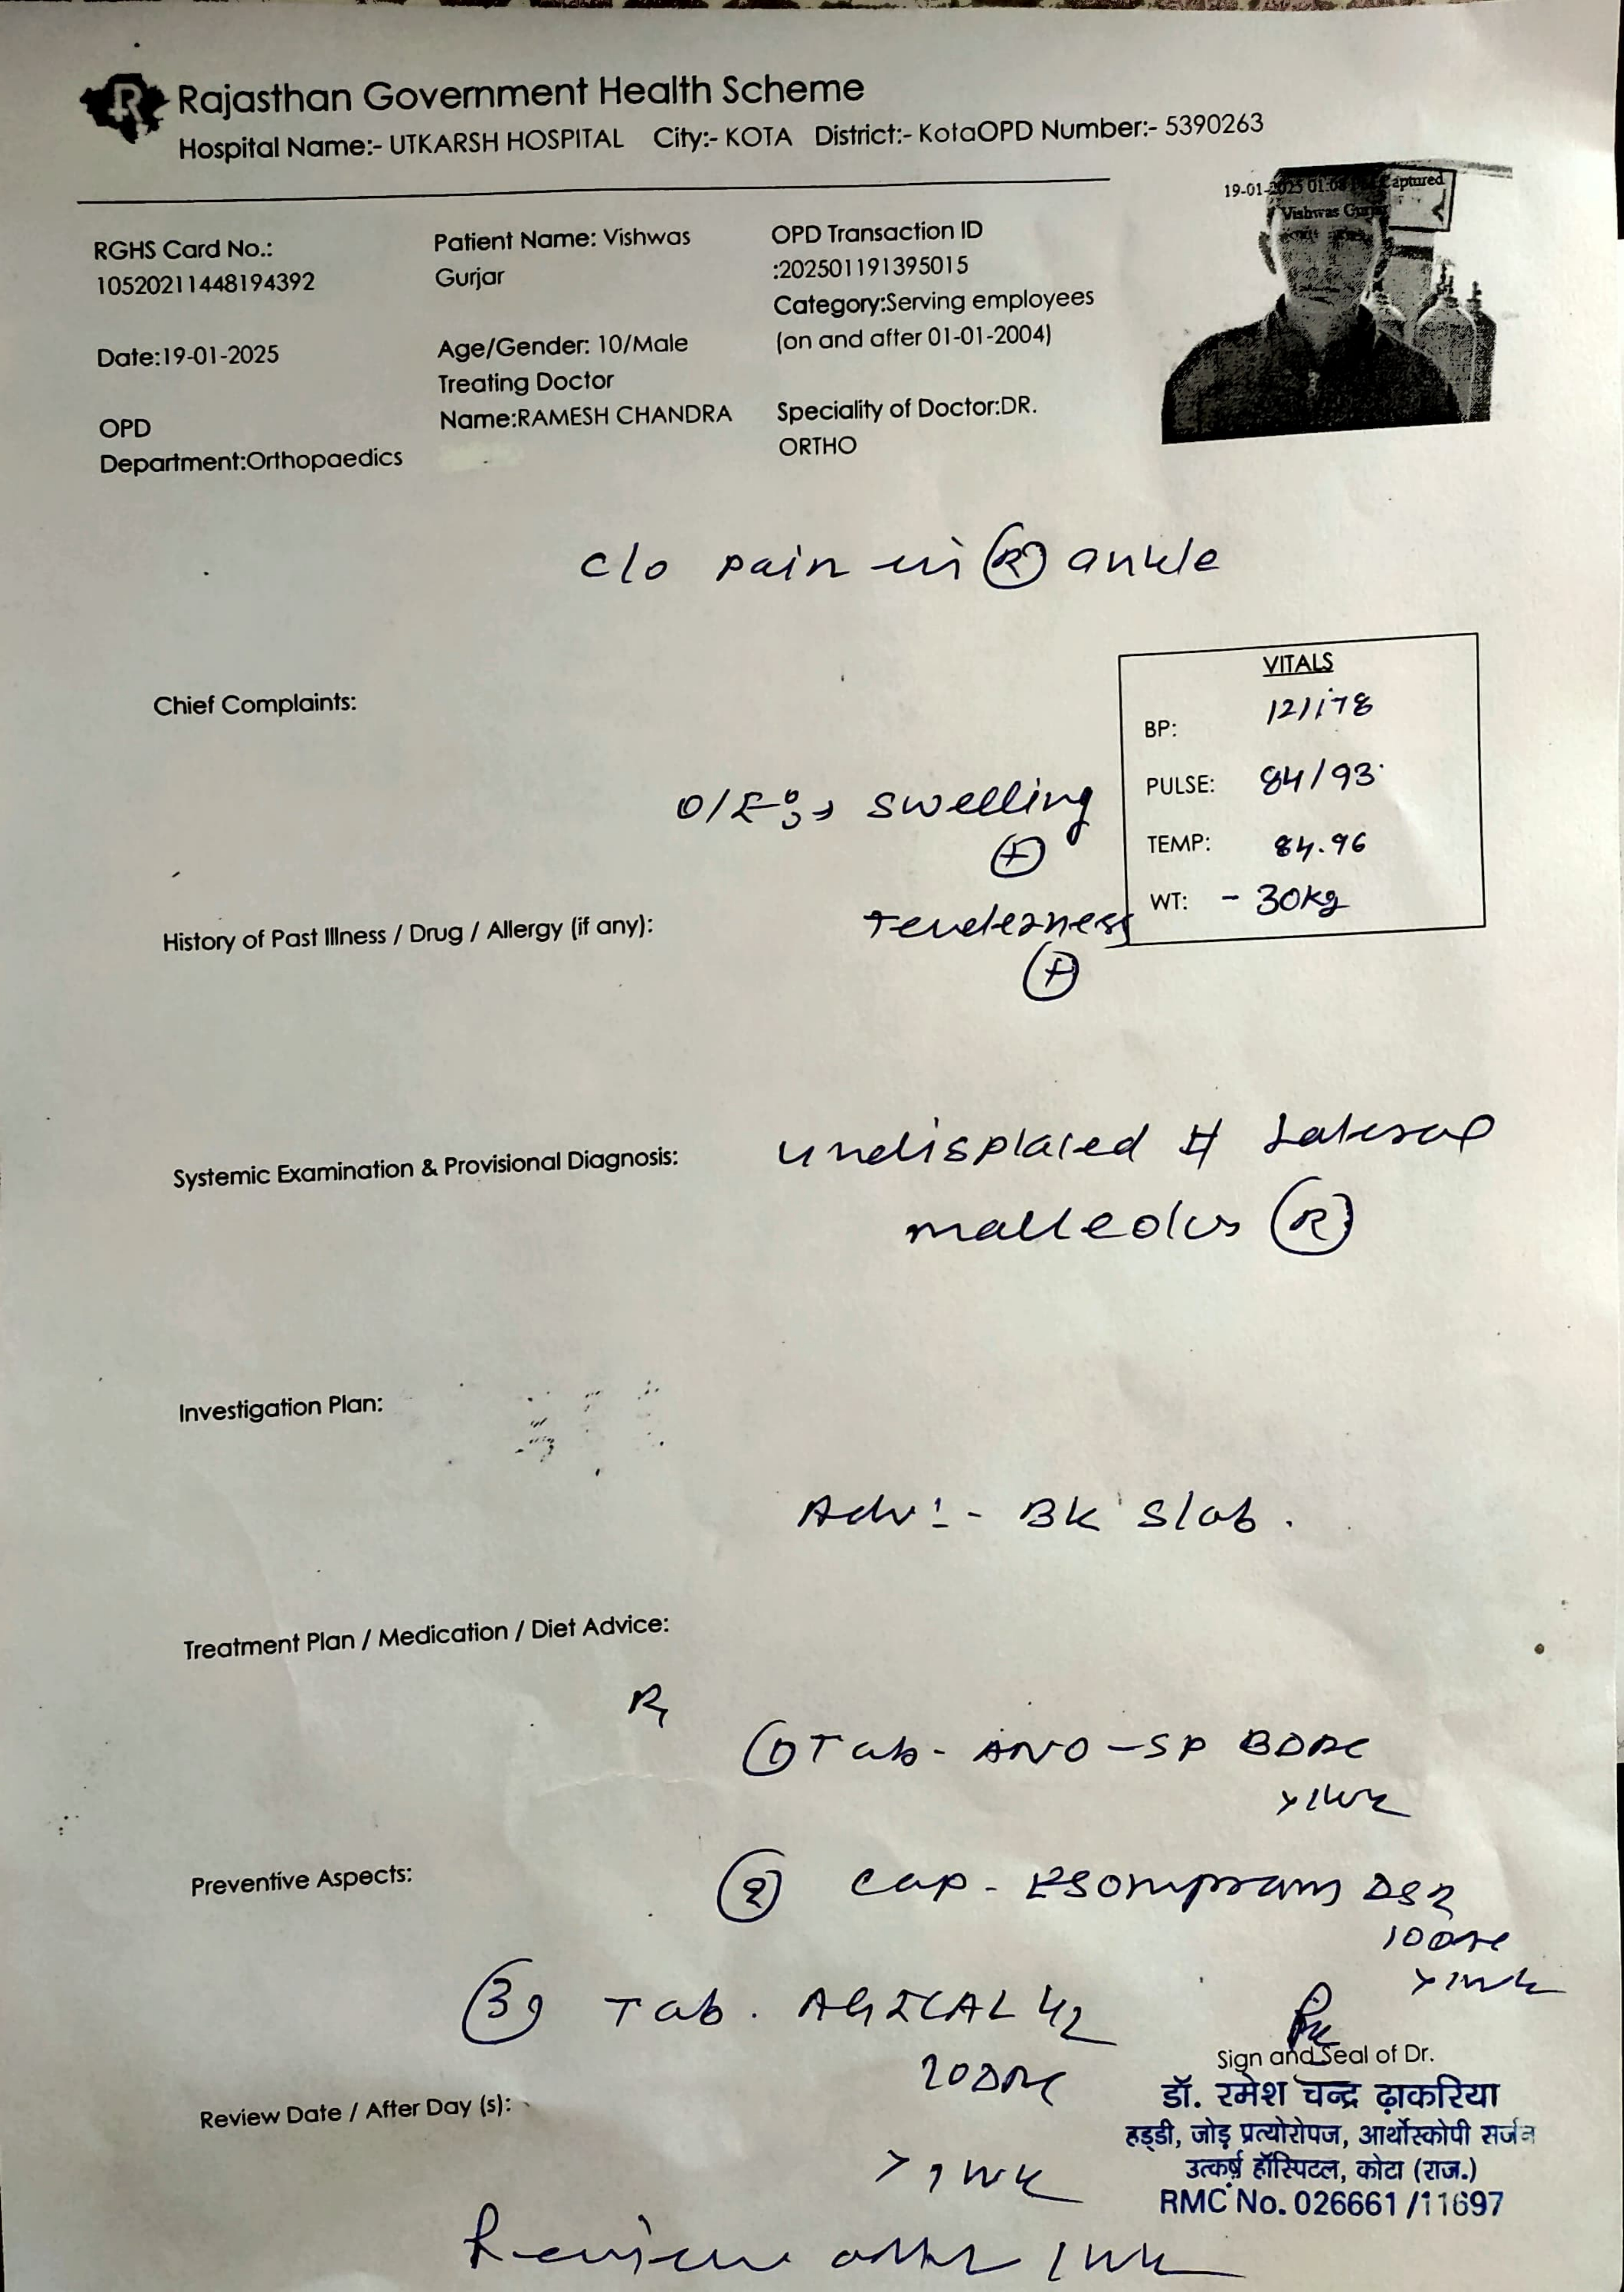 Rajasthan Government Health Scheme
Hospital Name:- UTKARSH HOSPITAL City:- KOTA District:- KotaOPD Number:- 5390263
19-01-2025 01:0 Captured
Vishwas Gurjar
RGHS Card No.:
10520211448194392
Patient Name: Vishwas
Gurjar
OPD Transaction ID
:202501191395015
Category:Serving employees
(on and after 01-01-2004)
Date:19-01-2025
Age/Gender: 10/Male
Treating Doctor
Name:RAMESH CHANDRA
Speciality of Doctor:DR.
ORTHO
OPD
Department:Orthopaedics
c/o pain in (R) ankle
VITALS
Chief Complaints:
BP: 121/78
PULSE: 84/93
O/E swelling
(+)
TEMP: 84.96
WT: - 30kg
History of Past Illness / Drug / Allergy (if any):
Tenderness
(+)
Systemic Examination & Provisional Diagnosis:
undisplaced # Lateral
malleolus (R)
Investigation Plan:
Adv:- BK Slab.
Treatment Plan / Medication / Diet Advice:
Rx
(1) Tab- ANO-SP BDPC
x1wk
Preventive Aspects:
(2) Cap-
x1wk
(3) Tab. AGICAL
Sign and Seal of Dr.
डॉ. रमेश चन्द्र ढ़ाकरिया
Review Date / After Day (s):
हड्डी, जोड़ प्रत्योरोपज, आर्थोस्कोपी सर्जन
x 1wk
उत्कर्ष हॉस्पिटल, कोटा (राज.)
RMC No. 026661/11697
Review after 1wk